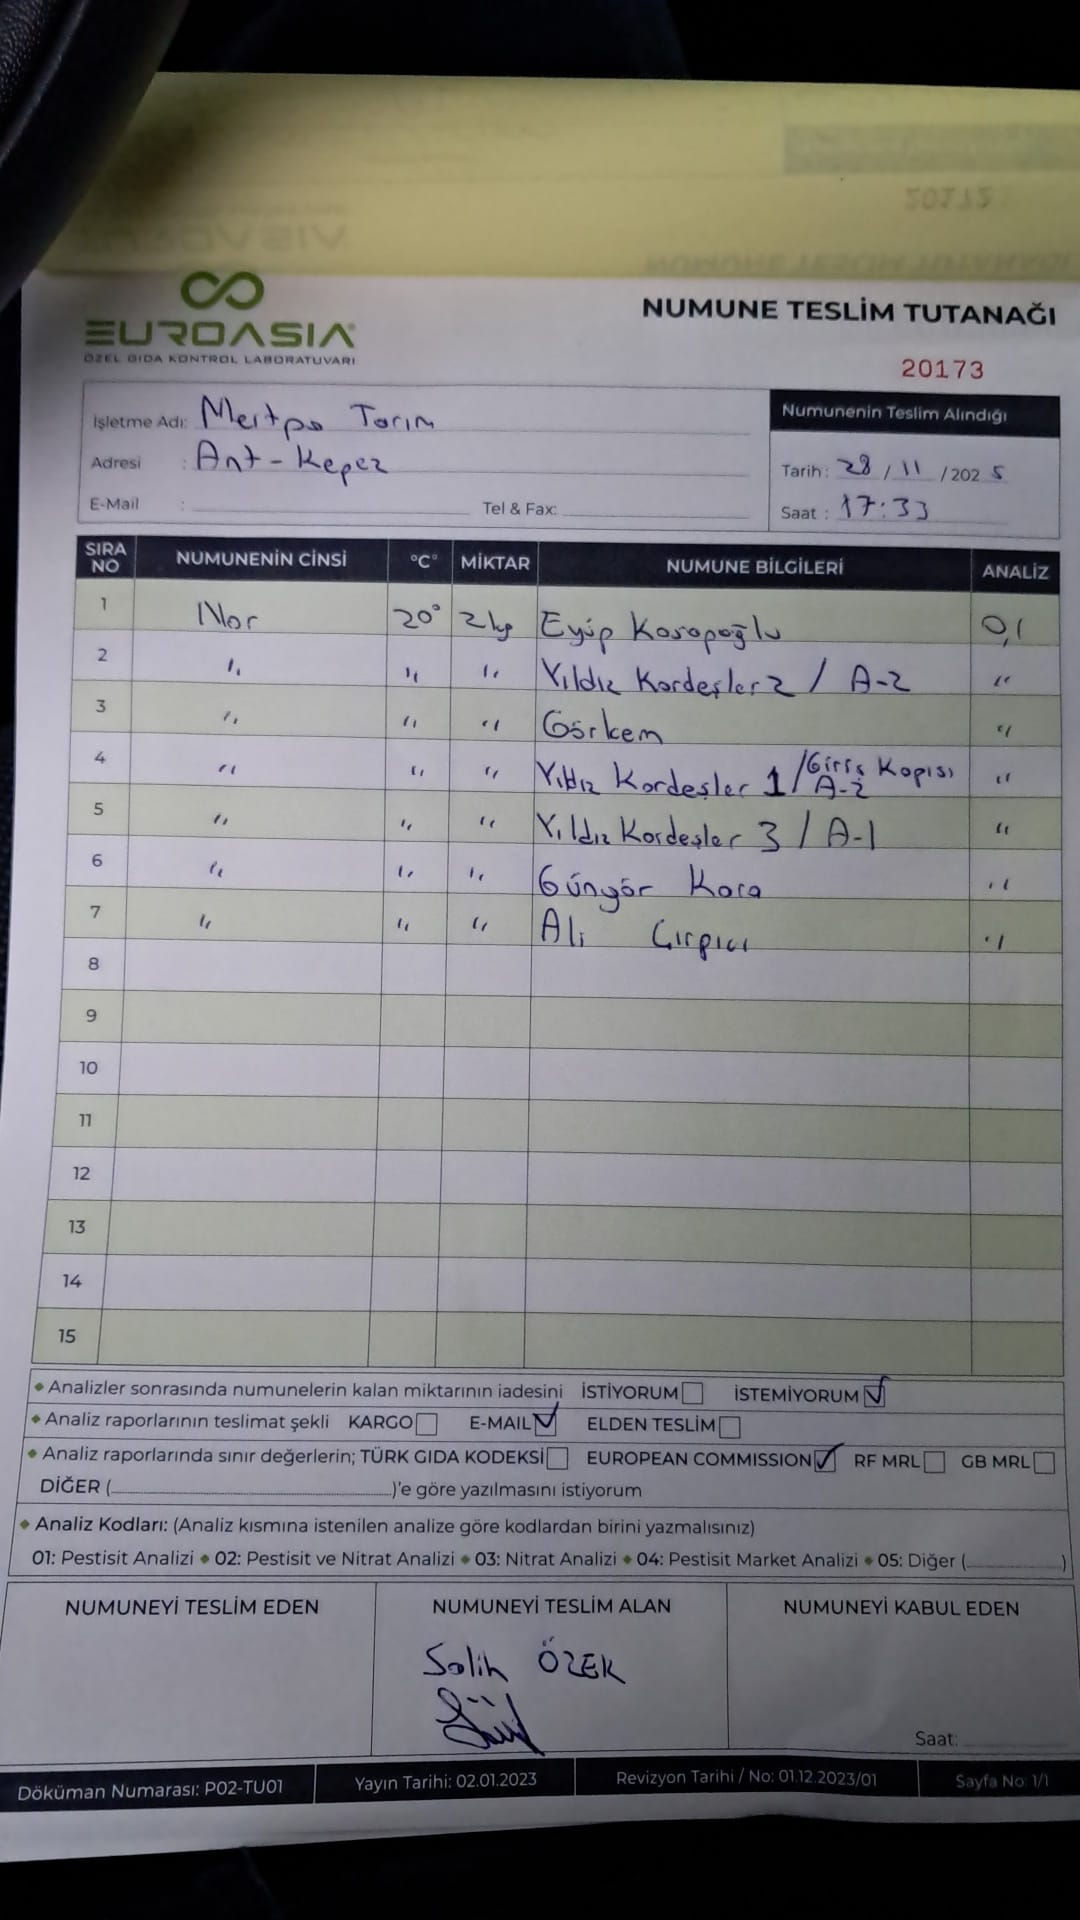 EUROASIA
ÖZEL GIDA KONTROL LABORATUVARI
NUMUNE TESLİM TUTANAĞI
20173
İşletme Adı: Meitpo Tarım
Adresi : Ant-Kepez
E-Mail : Tel & Fax:
Numunenin Teslim Alındığı
Tarih: 28/11/2025
Saat : 17:33
SIRA NO NUMUNENİN CİNSİ °C° MİKTAR NUMUNE BİLGİLERİ ANALİZ
1 Nar 20° 2kg Eyüp Karapoğlu 0,1
2 " " " Yıldız Kardeşler 2 / A-2 "
3 " " " Görkem "
4 " " " Yıldız Kardeşler 1 / Giriş Kapısı A-2 "
5 " " " Yıldız Kardeşler 3 / A-1 "
6 " " " Güngör Kara "
7 " " " Ali Çırpıcı "
8
9
10
11
12
13
14
15
Analizler sonrasında numunelerin kalan miktarının iadesini İSTİYORUM İSTEMİYORUM
Analiz raporlarının teslimat şekli KARGO E-MAIL ELDEN TESLİM
Analiz raporlarında sınır değerlerin; TÜRK GIDA KODEKSİ EUROPEAN COMMISSION RF MRL GB MRL
DİĞER (..........)'e göre yazılmasını istiyorum
Analiz Kodları: (Analiz kısmına istenilen analize göre kodlardan birini yazmalısınız)
01: Pestisit Analizi 02: Pestisit ve Nitrat Analizi 03: Nitrat Analizi 04: Pestisit Market Analizi 05: Diğer (..........)
NUMUNEYİ TESLİM EDEN NUMUNEYİ TESLİM ALAN NUMUNEYİ KABUL EDEN
Salih ÖZEK
Saat:
Döküman Numarası: P02-TU01 Yayın Tarihi: 02.01.2023 Revizyon Tarihi / No: 01.12.2023/01 Sayfa No: 1/1